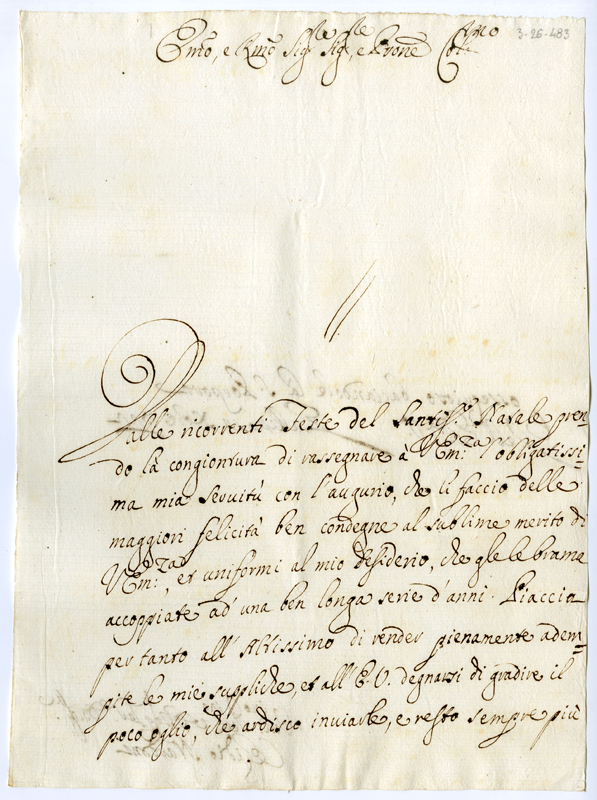 Emo, e Rmo Sigr Sigr, e Prone Colmo
3-26-483
Dalle ricorrenti Feste del Santiss.º Natale pren=
do la congiontura di rassegnare à V.Em:za l'obligatissi=
ma mia Servitù con l'augurio, che li faccio delle
maggiori felicità ben condegne al sublime merito di
V.Em:za, et uniformi al mio desiderio, che gle le brama
accoppiate ad' una ben longa serie d'anni. Piaccia
per tanto all'Altissimo di render pienamente adem=
pite le mie suppliche, et all'E.V. degnarsi di gradire il
poco oglio, che ardisco inviarle, e resto sempre più